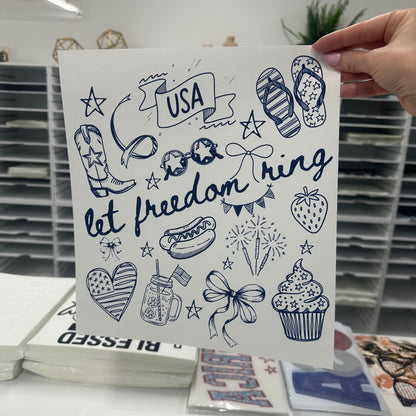 USA
let freedom ring
BLESSED